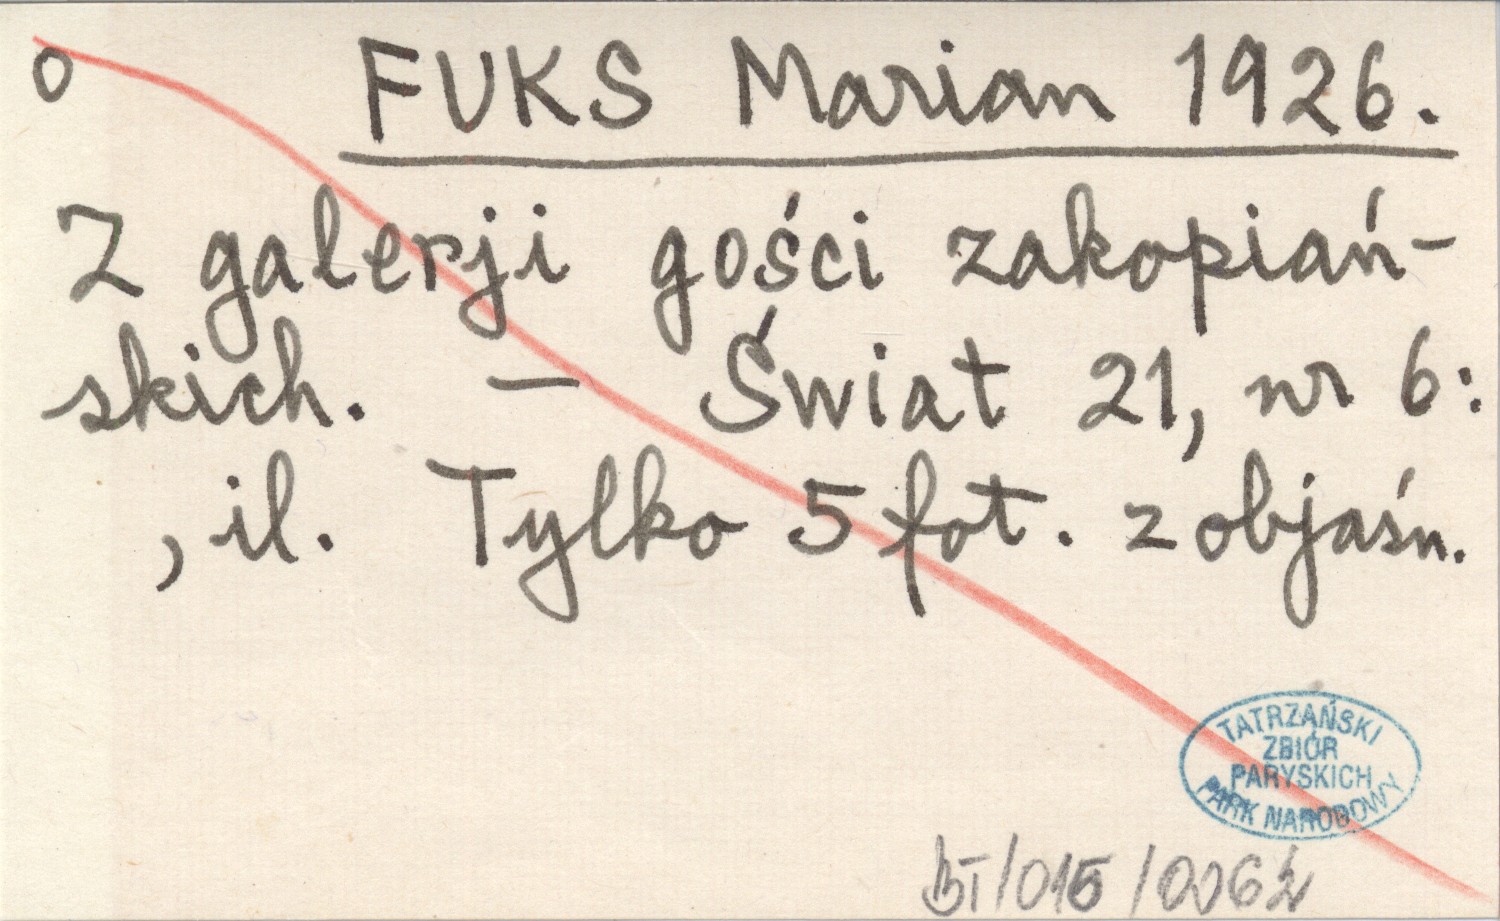 o FUKS Marian 1926.
Z galerji gości zakopiań-
skich. — Świat 21, nr 6:
, il. Tylko 5 fot. z objaśn.
TATRZAŃSKI
ZBIÓR
PARYSKICH
PARK NARODOWY
BT/015/0062